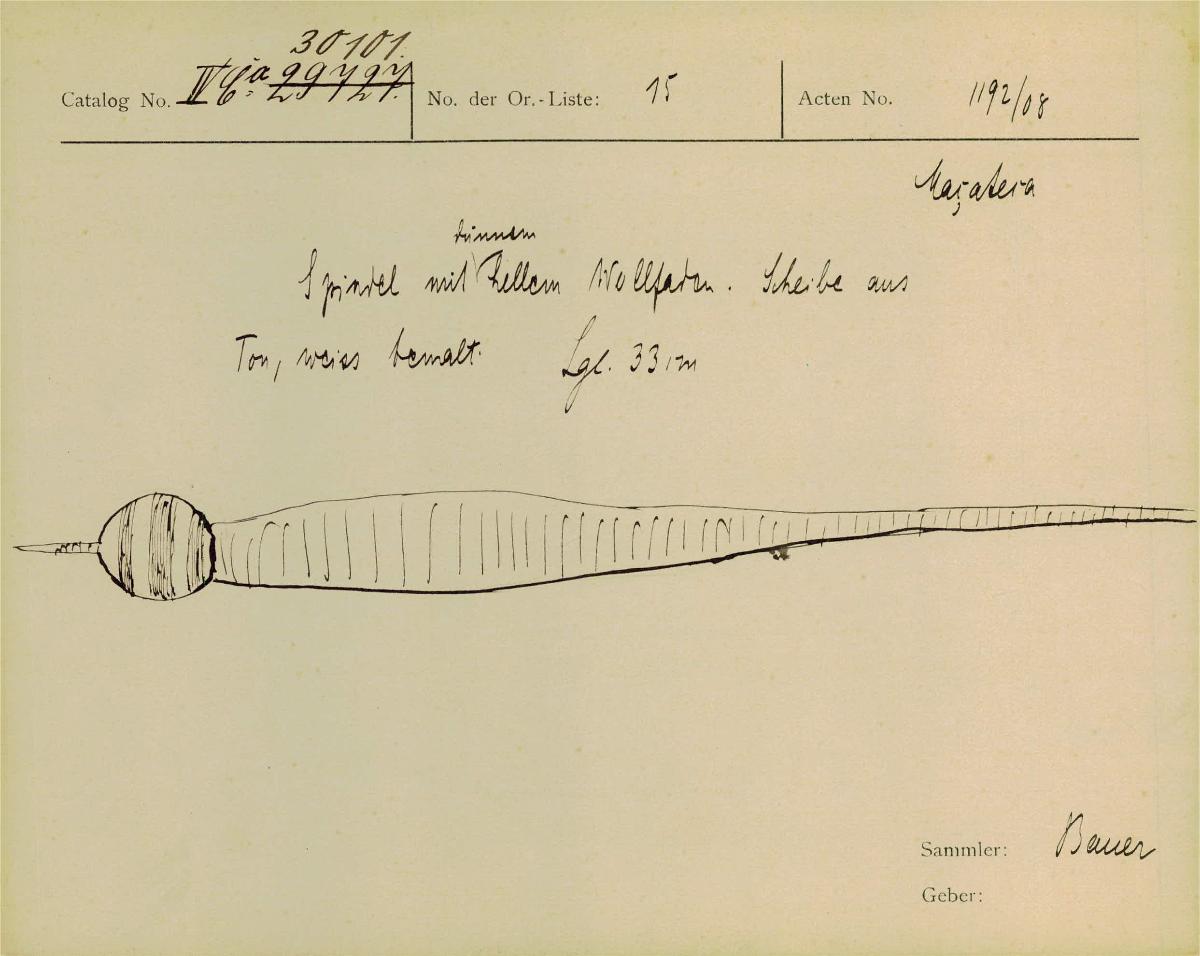 30101.
Catalog No. IV Ca 29727. No. der Or.-Liste: 15 Acten No. 1192/08
Maçateca
dünnem
Spindel mit hellem Wollfaden. Scheibe aus
Ton, weiss bemalt. Lgl. 33 cm
Sammler: Bauer
Geber: